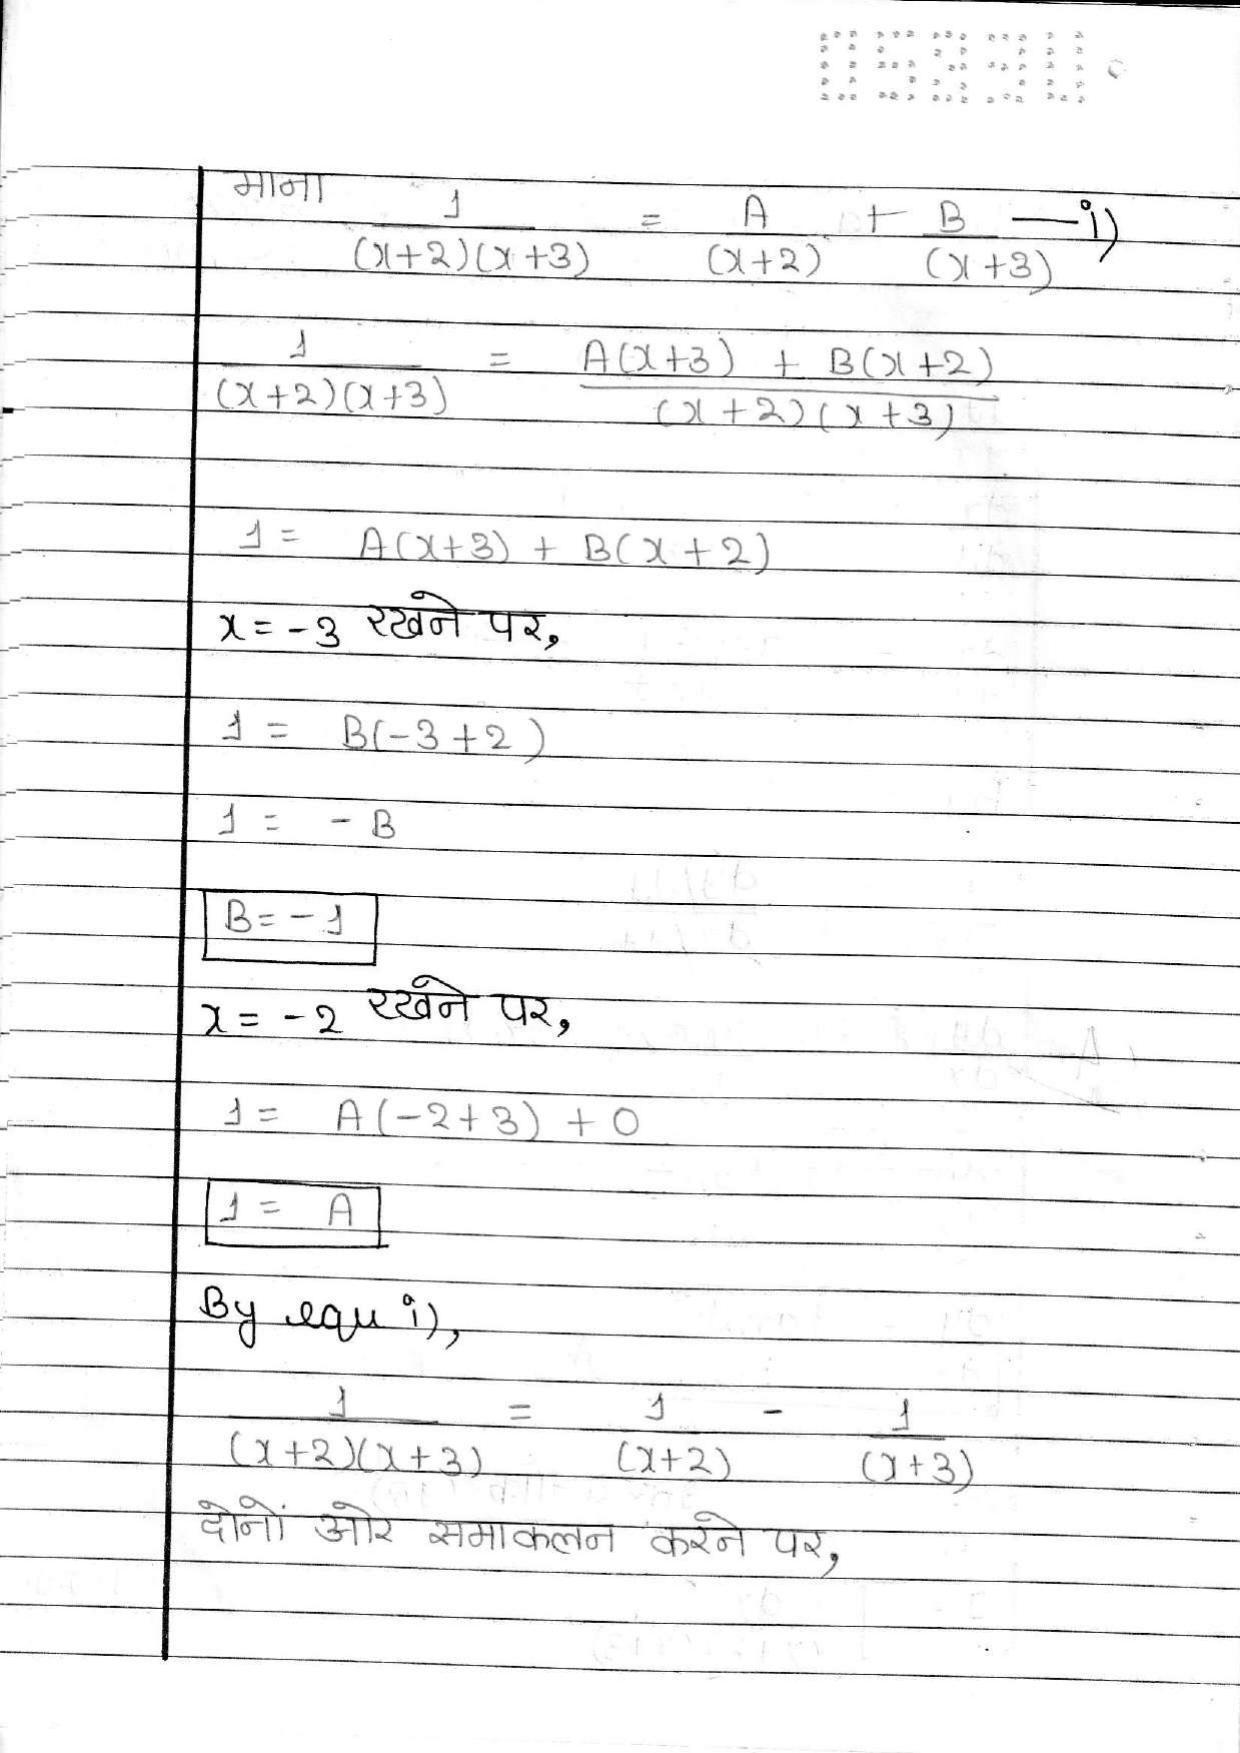 माना 1/(x+2)(x+3) = A/(x+2) + B/(x+3) — i)
1/(x+2)(x+3) = A(x+3) + B(x+2)/(x+2)(x+3)
1 = A(x+3) + B(x+2)
x = -3 रखने पर,
1 = B(-3+2)
1 = - B
B = - 1
x = -2 रखने पर,
1 = A(-2+3) + 0
1 = A
By equ i),
1/(x+2)(x+3) = 1/(x+2) - 1/(x+3)
दोनों ओर समाकलन करने पर,